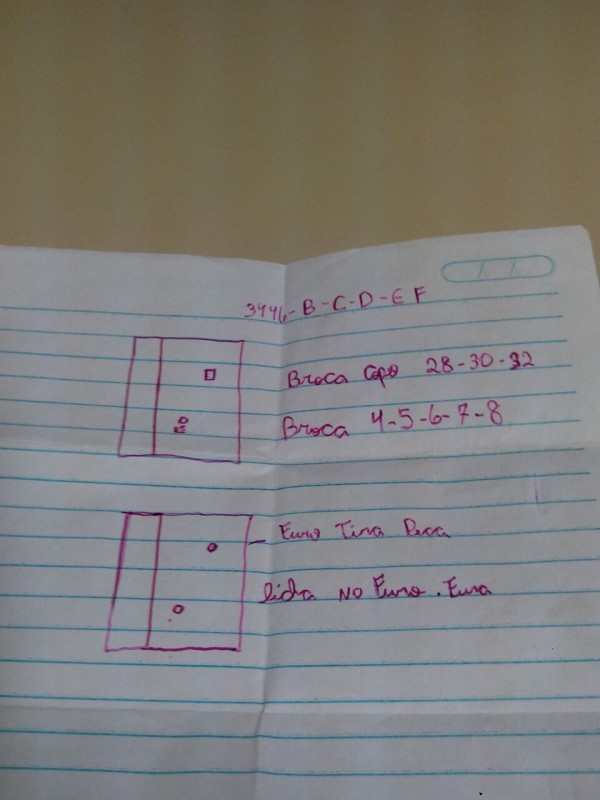 3446-B-C-D-E F
Broca Copo 28-30-32
Broca 4-5-6-7-8
Furo Tira Peca
No Furo. Fura